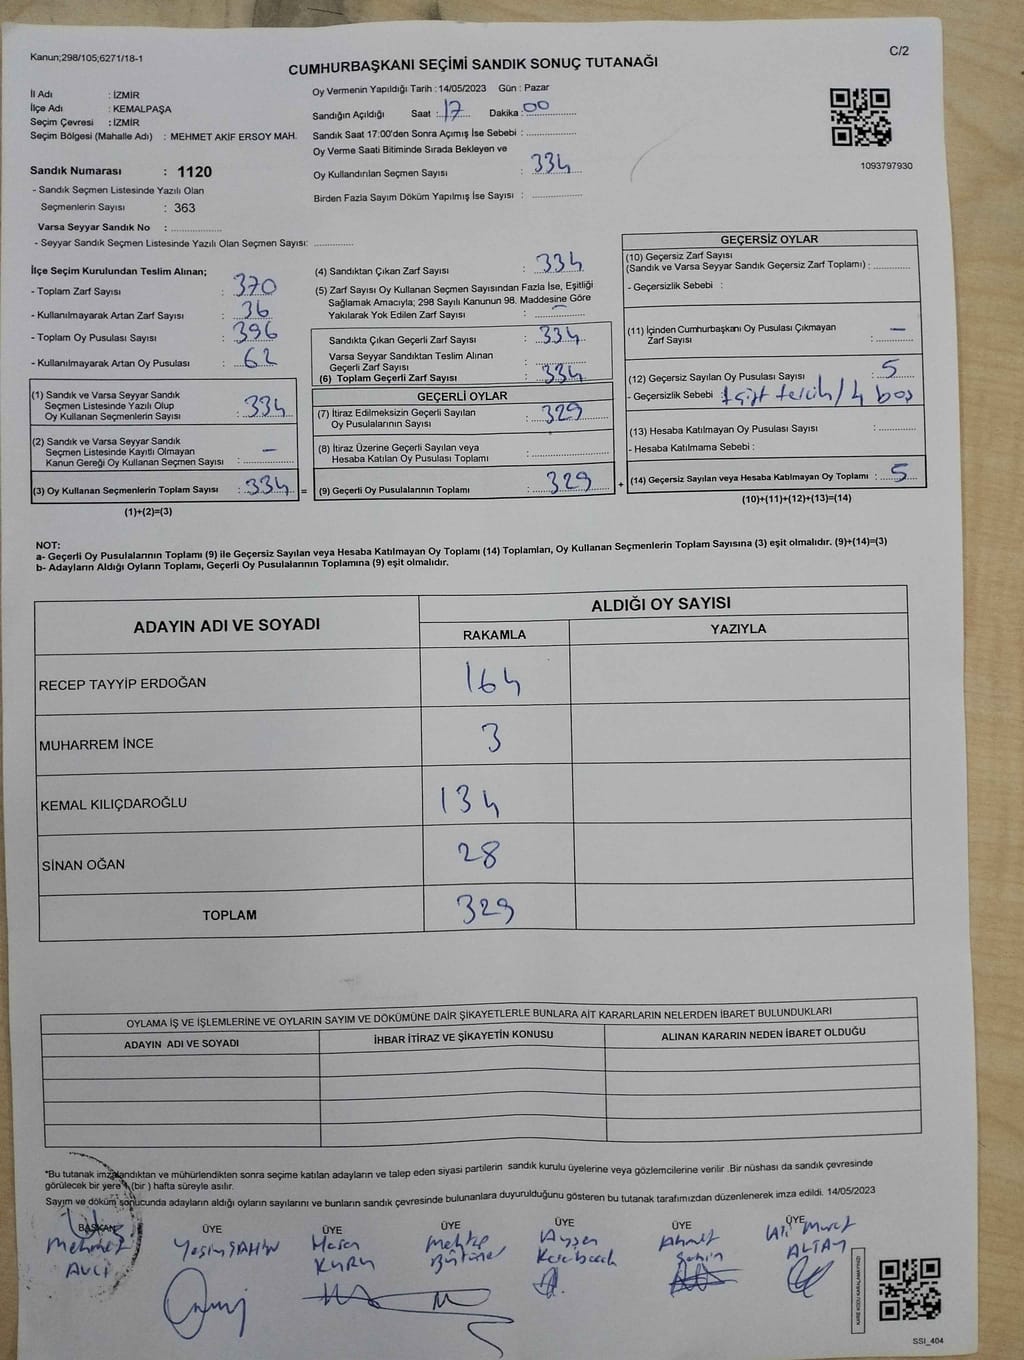 Kanun;298/105;6271/18-1
C/2
CUMHURBAŞKANI SEÇİMİ SANDIK SONUÇ TUTANAĞI
İl Adı : İZMİR
İlçe Adı : KEMALPAŞA
Seçim Çevresi : İZMİR
Seçim Bölgesi (Mahalle Adı) : MEHMET AKİF ERSOY MAH.
Sandık Numarası : 1120
- Sandık Seçmen Listesinde Yazılı Olan
Seçmenlerin Sayısı : 363
Varsa Seyyar Sandık No : ....................
- Seyyar Sandık Seçmen Listesinde Yazılı Olan Seçmen Sayısı: ...............
Oy Vermenin Yapıldığı Tarih : 14/05/2023 Gün : Pazar
Sandığın Açıldığı Saat : 17 Dakika : 00
Sandık Saat 17:00'den Sonra Açımış İse Sebebi : ....................
Oy Verme Saati Bitiminde Sırada Bekleyen ve
Oy Kullandırılan Seçmen Sayısı : 334
Birden Fazla Sayım Döküm Yapılmış İse Sayısı : ....................
1093797930
İlçe Seçim Kurulundan Teslim Alınan;
- Toplam Zarf Sayısı : 370
- Kullanılmayarak Artan Zarf Sayısı : 36
- Toplam Oy Pusulası Sayısı : 396
- Kullanılmayarak Artan Oy Pusulası : 62
(1) Sandık ve Varsa Seyyar Sandık
Seçmen Listesinde Yazılı Olup
Oy Kullanan Seçmenlerin Sayısı : 334
(2) Sandık ve Varsa Seyyar Sandık
Seçmen Listesinde Kayıtlı Olmayan
Kanun Gereği Oy Kullanan Seçmen Sayısı : –
(3) Oy Kullanan Seçmenlerin Toplam Sayısı : 334 =
(1)+(2)=(3)
(4) Sandıktan Çıkan Zarf Sayısı : 334
(5) Zarf Sayısı Oy Kullanan Seçmen Sayısından Fazla İse, Eşitliği
Sağlamak Amacıyla; 298 Sayılı Kanunun 98. Maddesine Göre
Yakılarak Yok Edilen Zarf Sayısı : –
Sandıkta Çıkan Geçerli Zarf Sayısı : 334
Varsa Seyyar Sandıktan Teslim Alınan
Geçerli Zarf Sayısı : ....................
(6) Toplam Geçerli Zarf Sayısı : 334
GEÇERLİ OYLAR
(7) İtiraz Edilmeksizin Geçerli Sayılan
Oy Pusulalarının Sayısı : 329
(8) İtiraz Üzerine Geçerli Sayılan veya
Hesaba Katılan Oy Pusulası Toplamı : ....................
(9) Geçerli Oy Pusulalarının Toplamı : 329 +
GEÇERSİZ OYLAR
(10) Geçersiz Zarf Sayısı
(Sandık ve Varsa Seyyar Sandık Geçersiz Zarf Toplamı) : ..............
- Geçersizlik Sebebi :
(11) İçinden Cumhurbaşkanı Oy Pusulası Çıkmayan
Zarf Sayısı : –
(12) Geçersiz Sayılan Oy Pusulası Sayısı : 5
- Geçersizlik Sebebi 1 çift tercih / 4 boş
(13) Hesaba Katılmayan Oy Pusulası Sayısı : ..............
- Hesaba Katılmama Sebebi :
(14) Geçersiz Sayılan veya Hesaba Katılmayan Oy Toplamı : 5
(10)+(11)+(12)+(13)=(14)
NOT:
a- Geçerli Oy Pusulalarının Toplamı (9) ile Geçersiz Sayılan veya Hesaba Katılmayan Oy Toplamı (14) Toplamları, Oy Kullanan Seçmenlerin Toplam Sayısına (3) eşit olmalıdır. (9)+(14)=(3)
b- Adayların Aldığı Oyların Toplamı, Geçerli Oy Pusulalarının Toplamına (9) eşit olmalıdır.
ADAYIN ADI VE SOYADI
ALDIĞI OY SAYISI
RAKAMLA YAZIYLA
RECEP TAYYİP ERDOĞAN 164
MUHARREM İNCE 3
KEMAL KILIÇDAROĞLU 134
SİNAN OĞAN 28
TOPLAM 329
OYLAMA İŞ VE İŞLEMLERİNE VE OYLARIN SAYIM VE DÖKÜMÜNE DAİR ŞİKAYETLERLE BUNLARA AİT KARARLARIN NELERDEN İBARET BULUNDUKLARI
ADAYIN ADI VE SOYADI İHBAR İTİRAZ VE ŞİKAYETİN KONUSU ALINAN KARARIN NEDEN İBARET OLDUĞU
*Bu tutanak imzalandıktan ve mühürlendikten sonra seçime katılan adayların ve talep eden siyasi partilerin sandık kurulu üyelerine veya gözlemcilerine verilir .Bir nüshası da sandık çevresinde
görülecek bir yere (bir ) hafta süreyle asılır.
Sayım ve döküm sonucunda adayların aldığı oyların sayılarını ve bunların sandık çevresinde bulunanlara duyurulduğunu gösteren bu tutanak tarafımızdan düzenlenerek imza edildi. 14/05/2023
BAŞKAN ÜYE ÜYE ÜYE ÜYE ÜYE ÜYE
Mehmet Yasin ŞAHİN Hasan Mehtap Ayşen Ahmet Ali Murat
AVCI KURU Bütüner Karabacak Şahin ALTAY
KARE KODU KARALAMAYINIZ!
SSI_404